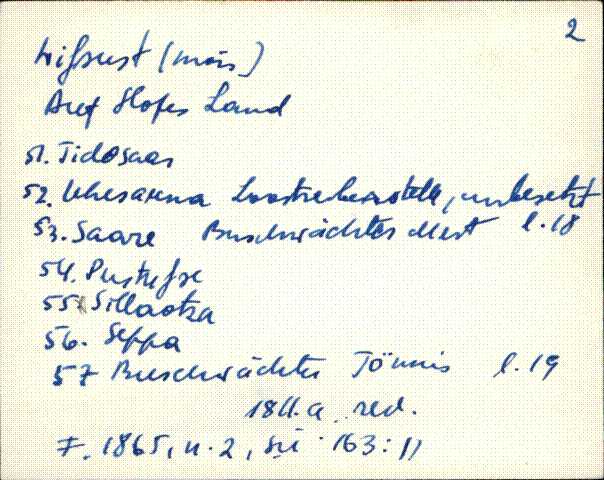 2
Wissust (mõis)
Auf Hofes Land
51. Tidosaar
52. Uhesauna Lostreiberstelle, unbesetzt
53. Saare Buschwächter Mert l. 18
54.
55. Sillaotsa
56. Seppa
57 Buschwächter Tönnis l. 19
1811. a. red.
F. 1865, n. 2, sü 163: 11